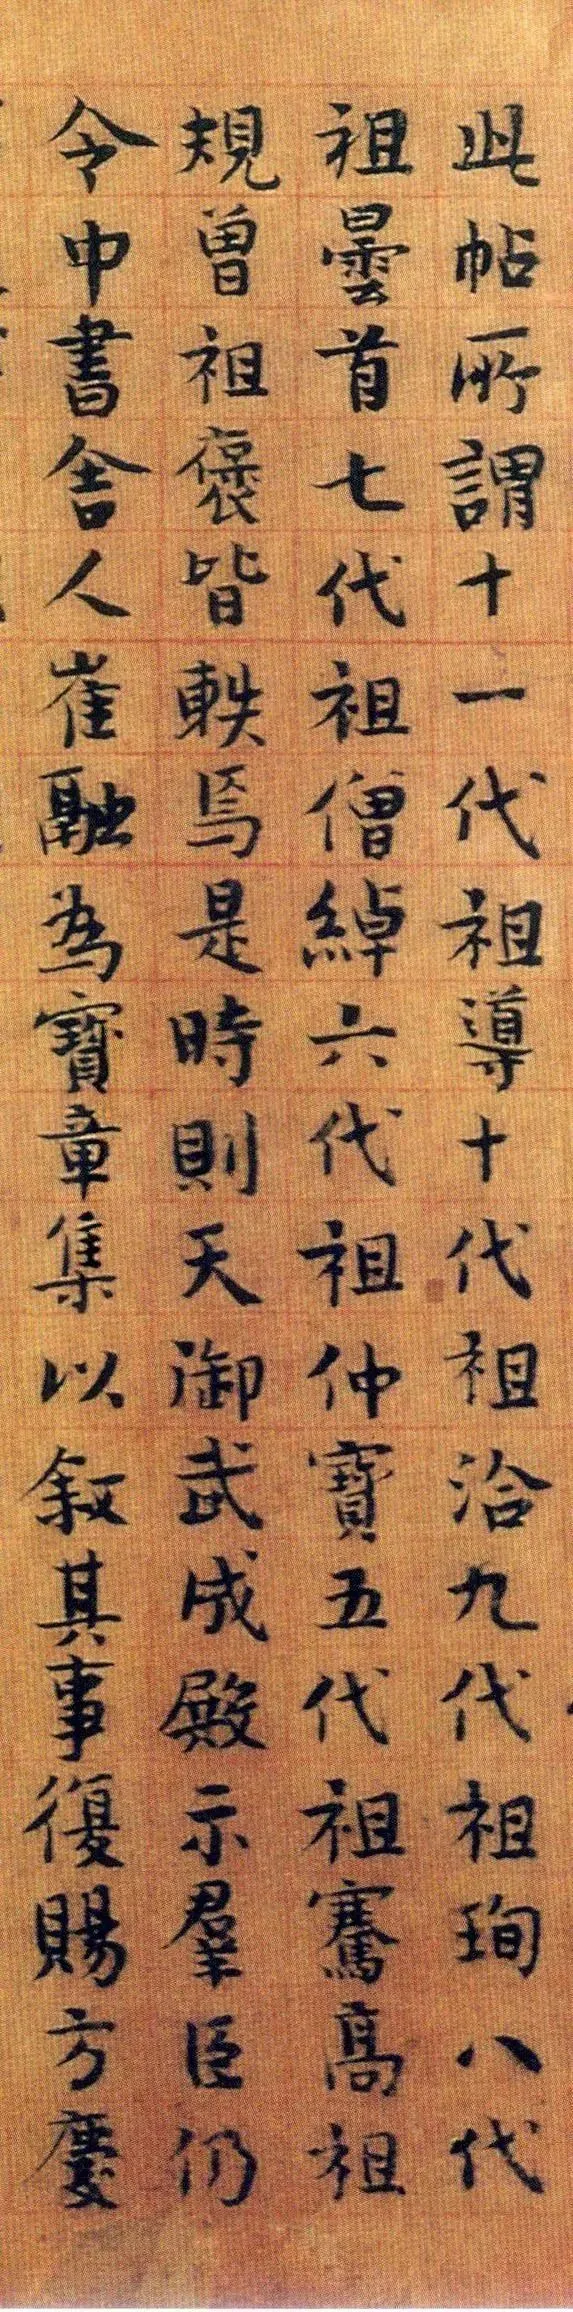 此帖所謂十一代祖導十代祖洽九代祖珣八代
祖曇首七代祖僧綽六代祖仲寶五代祖騫高祖
規曾祖褒皆軼焉是時則天御武成殿示羣臣仍
令中書舍人崔融為寶章集以敘其事復賜方慶